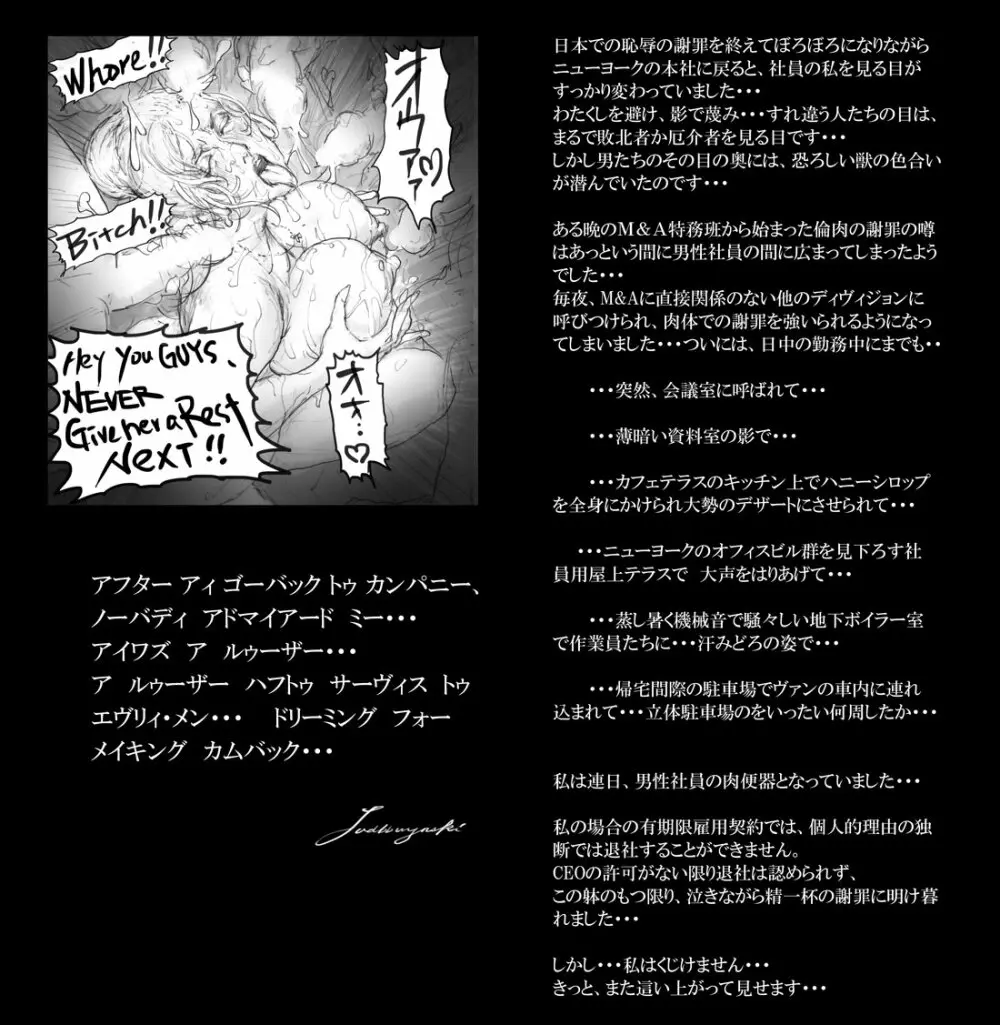 Whore!!
Bitch!!
オウァァ♡
オォ…♡
Hey You GUYS、
NEVER
Give her a Rest
NEXT!!
アフター アィ ゴーバック トゥ カンパニー、
ノーバディ アドマイアード ミー・・・
アイワズ ア ルゥーザー・・・
ア ルゥーザー ハフトゥ サーヴィス トゥ
エヴリィ・メン・・・ ドリーミング フォー
メイキング カムバック・・・
日本での恥辱の謝罪を終えてぼろぼろになりながら
ニューヨークの本社に戻ると、社員の私を見る目が
すっかり変わっていました・・・
わたくしを避け、影で蔑み・・・すれ違う人たちの目は、
まるで敗北者か厄介者を見る目です・・・
しかし男たちのその目の奥には、恐ろしい獣の色合い
が潜んでいたのです・・・
ある晩のM＆A特務班から始まった倫肉の謝罪の噂
はあっという間に男性社員の間に広まってしまったよう
でした・・・
毎夜、M&Aに直接関係のない他のディヴィジョンに
呼びつけられ、肉体での謝罪を強いられるようになっ
てしまいました・・・ついには、日中の勤務中にまでも・・
・・・突然、会議室に呼ばれて・・・
・・・薄暗い資料室の影で・・・
・・・カフェテラスのキッチン上でハニーシロップ
を全身にかけられ大勢のデザートにさせられて・・・
・・・ニューヨークのオフィスビル群を見下ろす社
員用屋上テラスで 大声をはりあげて・・・
・・・蒸し暑く機械音で騒々しい地下ボイラー室
で作業員たちに・・・汗みどろの姿で・・・
・・・帰宅間際の駐車場でヴァンの車内に連れ
込まれて・・・立体駐車場のをいったい何周したか・・・
私は連日、男性社員の肉便器となっていました・・・
私の場合の有期限雇用契約では、個人的理由の独
断では退社することができません。
CEOの許可がない限り退社は認められず、
この躰のもつ限り、泣きながら精一杯の謝罪に明け暮
れました・・・
しかし・・・私はくじけません・・・
きっと、また這い上がって見せます・・・